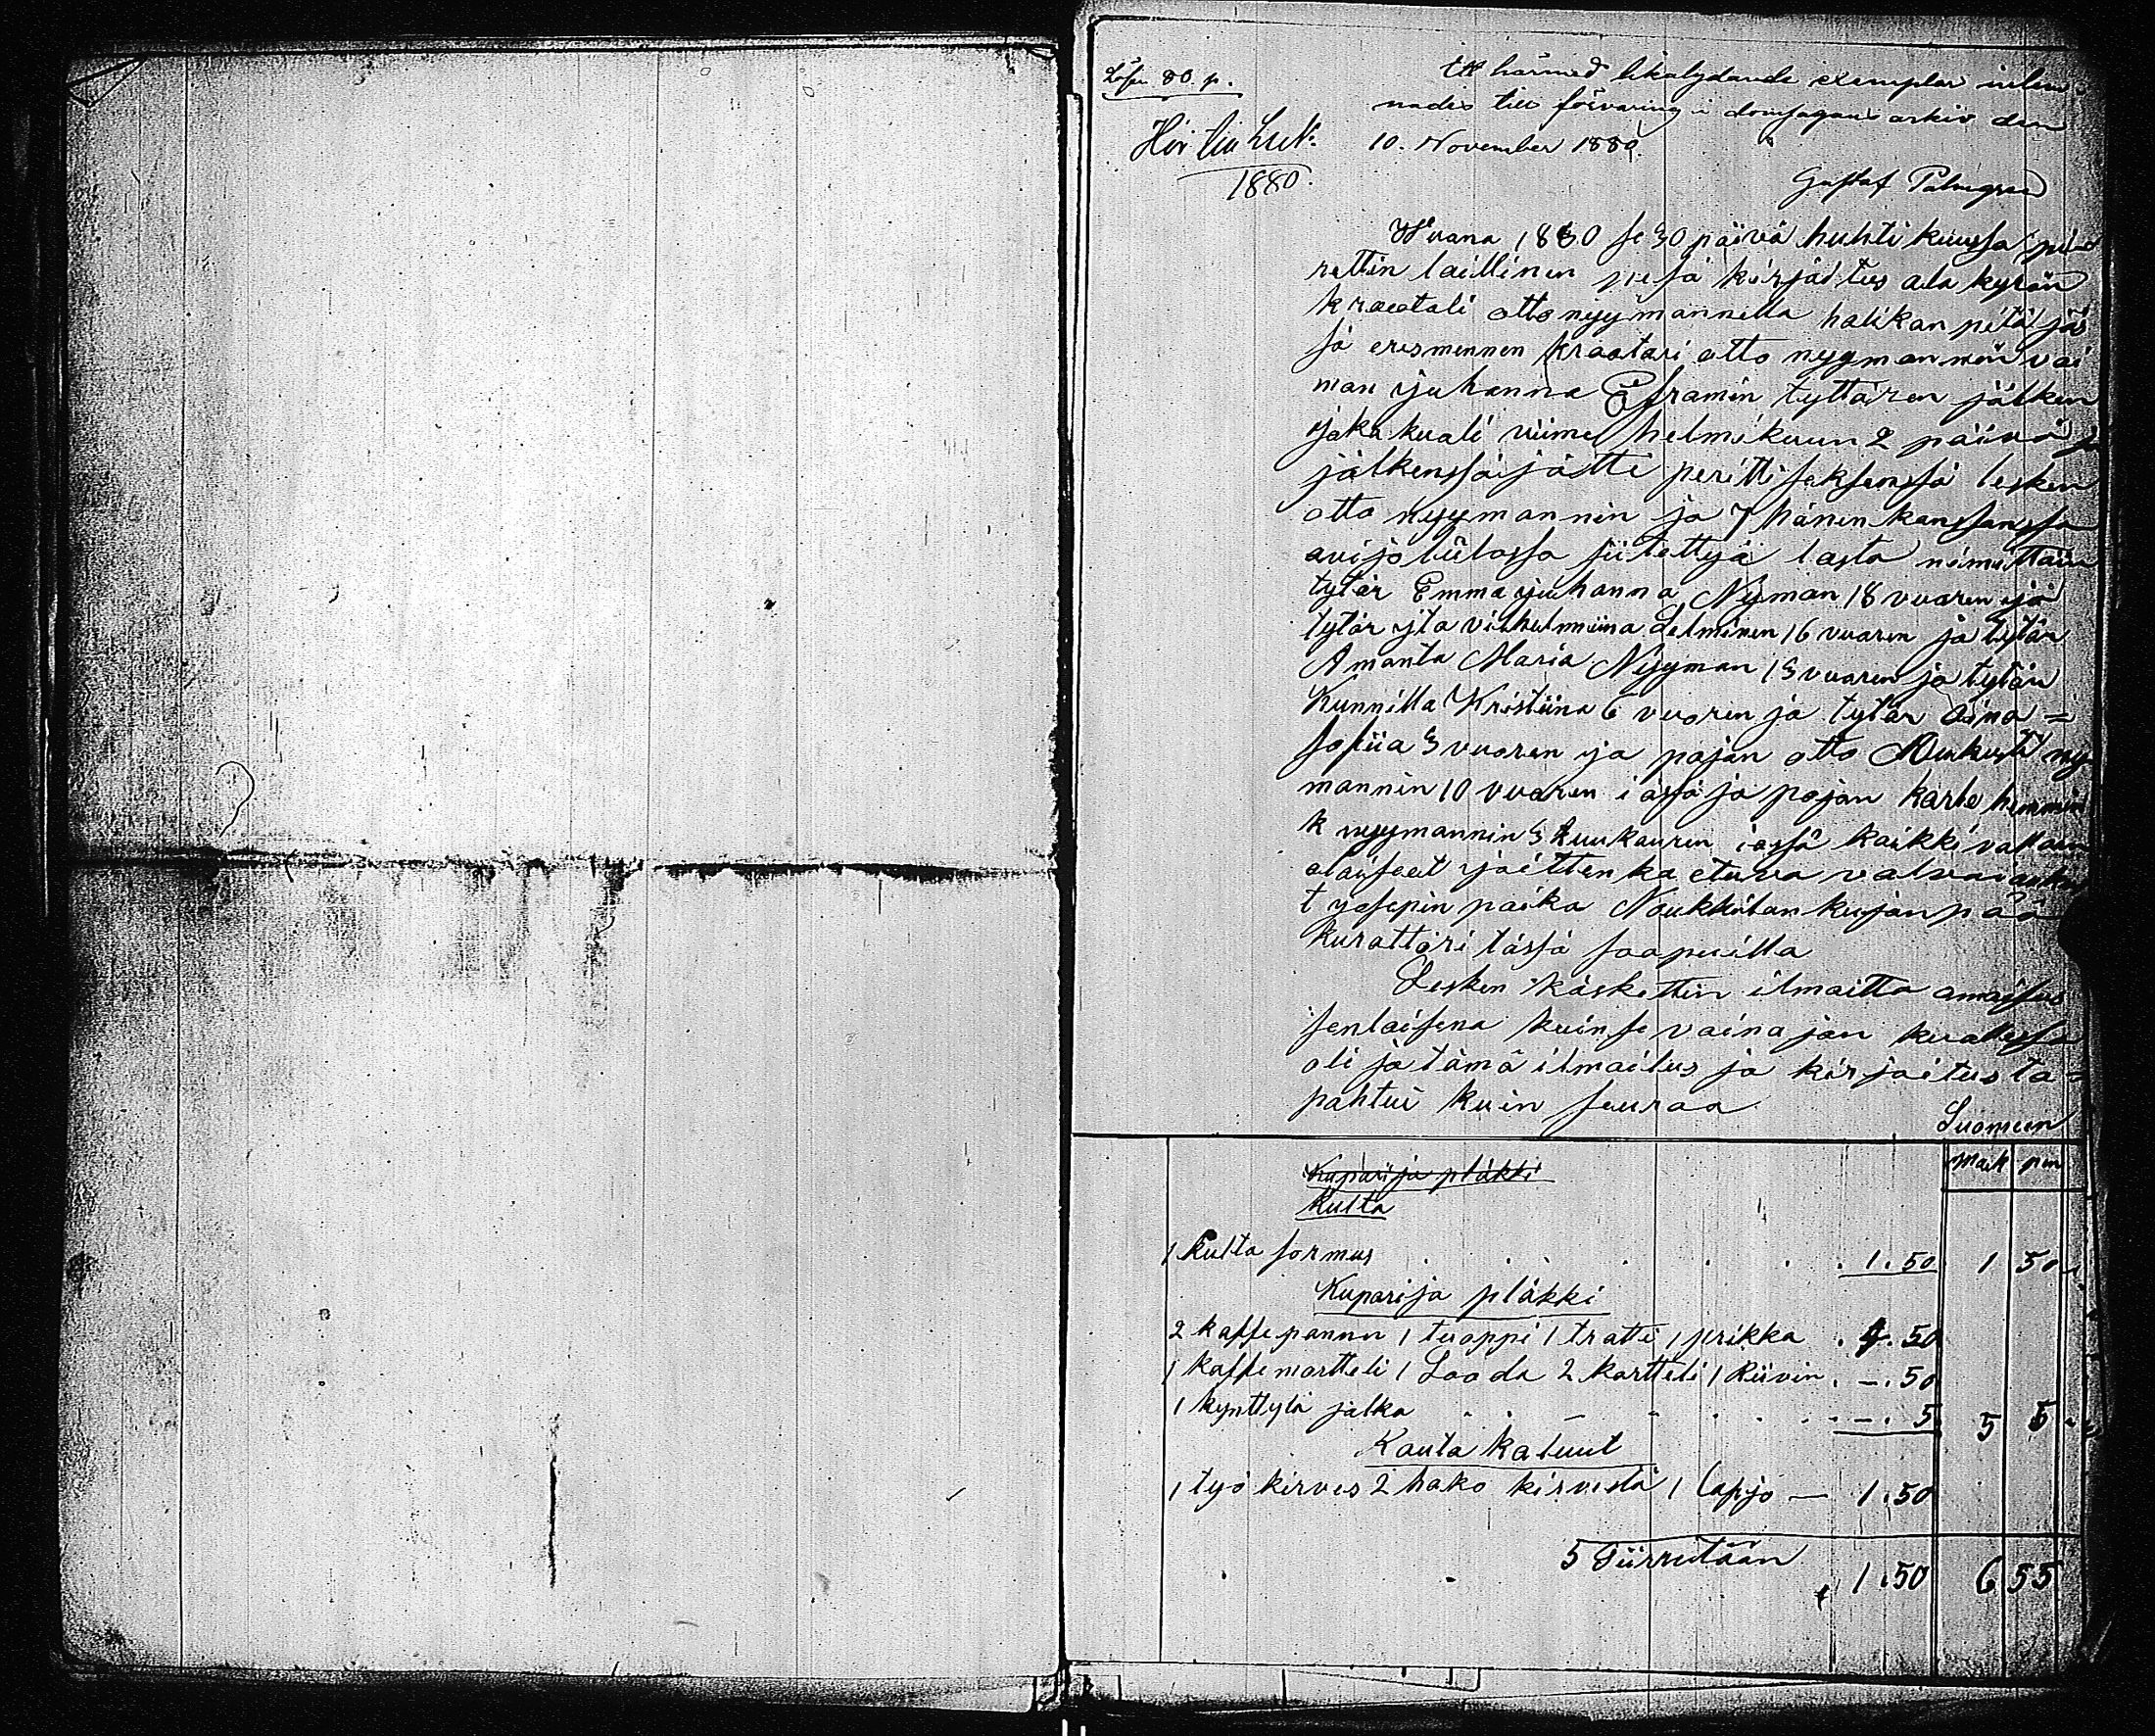 Lösen 80 p.
Ett härmed likalydande exemplar inlem-
nades till förvaring i domsagans arkiv den
10. November 1880.
1880.
Gustaf Palmgren
Wuana 1880 se 30 päivä huhti kuussa pid
rettin laillinen pesä kirjåitus ala kyrän
kraatali otto nyymannilla halikan pitäjäs
sä eresmennen kraatari otto nyymannin vai
man juhanna Eframin tyttären jälken
joka kuali viime helmikuun 2 päivä ja
jälkenssäijätti perittiseksenssä lesken
otto nyymannin ja 7 hänen kanssanssa
avijoliitossa siitettyä lasta nimittäin
tytär Emma juhanna Nyman 18 vuaren ja
tytär ita vilhelmiina Selminen 16 vuaren ja tytär
Amanta Maria Nyyman 13 vuaren ja tytär
Kunnilla Kristiina 6 vuoren ja tytär Aina =
sofiia 3 vuoren ja pojan otto Aukusti ny
mannin 10 vuaren iässä ja pojan karle hemmin
k nyymannin 3 kuukauren iässä kaikki vallan
alaiseet joitten ka etuva valvoi
t josepin paika Noukkilan kujanpää
kurattari tässä saapuilla
Lesken käskettin ilmaitta amaisus
senlaisena kuin se vainajan kuallessa
oli ja tämä ilmaitus ja kirjaitus ta=
pahtui kuin seuraa
Suomeen
Mark pen
Kupari ja pläkki
Kulta
1 Kulta sormus . . . . . . 1.50 1 50
Kupari ja pläkki
2 kaffe pannu 1 tuoppi 1 tratti 1 prikka . 4.50
1 kaffe mortteli 1 Laoda 2 kortteli 1 Riivin . -.50
1 kynttylä jalka . . . . . . -. 5 5 5
Rauta kaluut
1 työ kirves 2 hako kirvestä 1 lapjo — 1.50
Siirretään 1.50 6 55